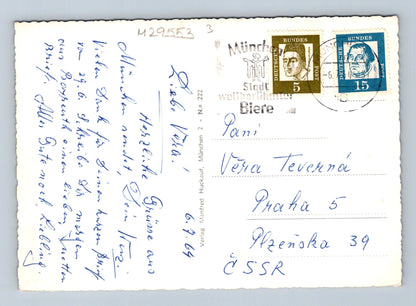 M29553 3
6.9.64
Liebe Věra!
Herzliche Grüsse aus
München sendet, Dein
Vielen Dank für Deinen kurzen Brief
vom 29.8. Schreibe Dir morgen
aus einen lieben, netten
Brief. Alles Gute noch, Liebling.
Verlag Manfred Huckauf, München 2 - N.o 222
München
Stadt
weltberühmter
Biere
DEUTSCHE BUNDESPOST
5
DEUTSCHE BUNDESPOST
15
Paní
Věra Teverná
Praha 5
Plzeňska 39
ČSSR